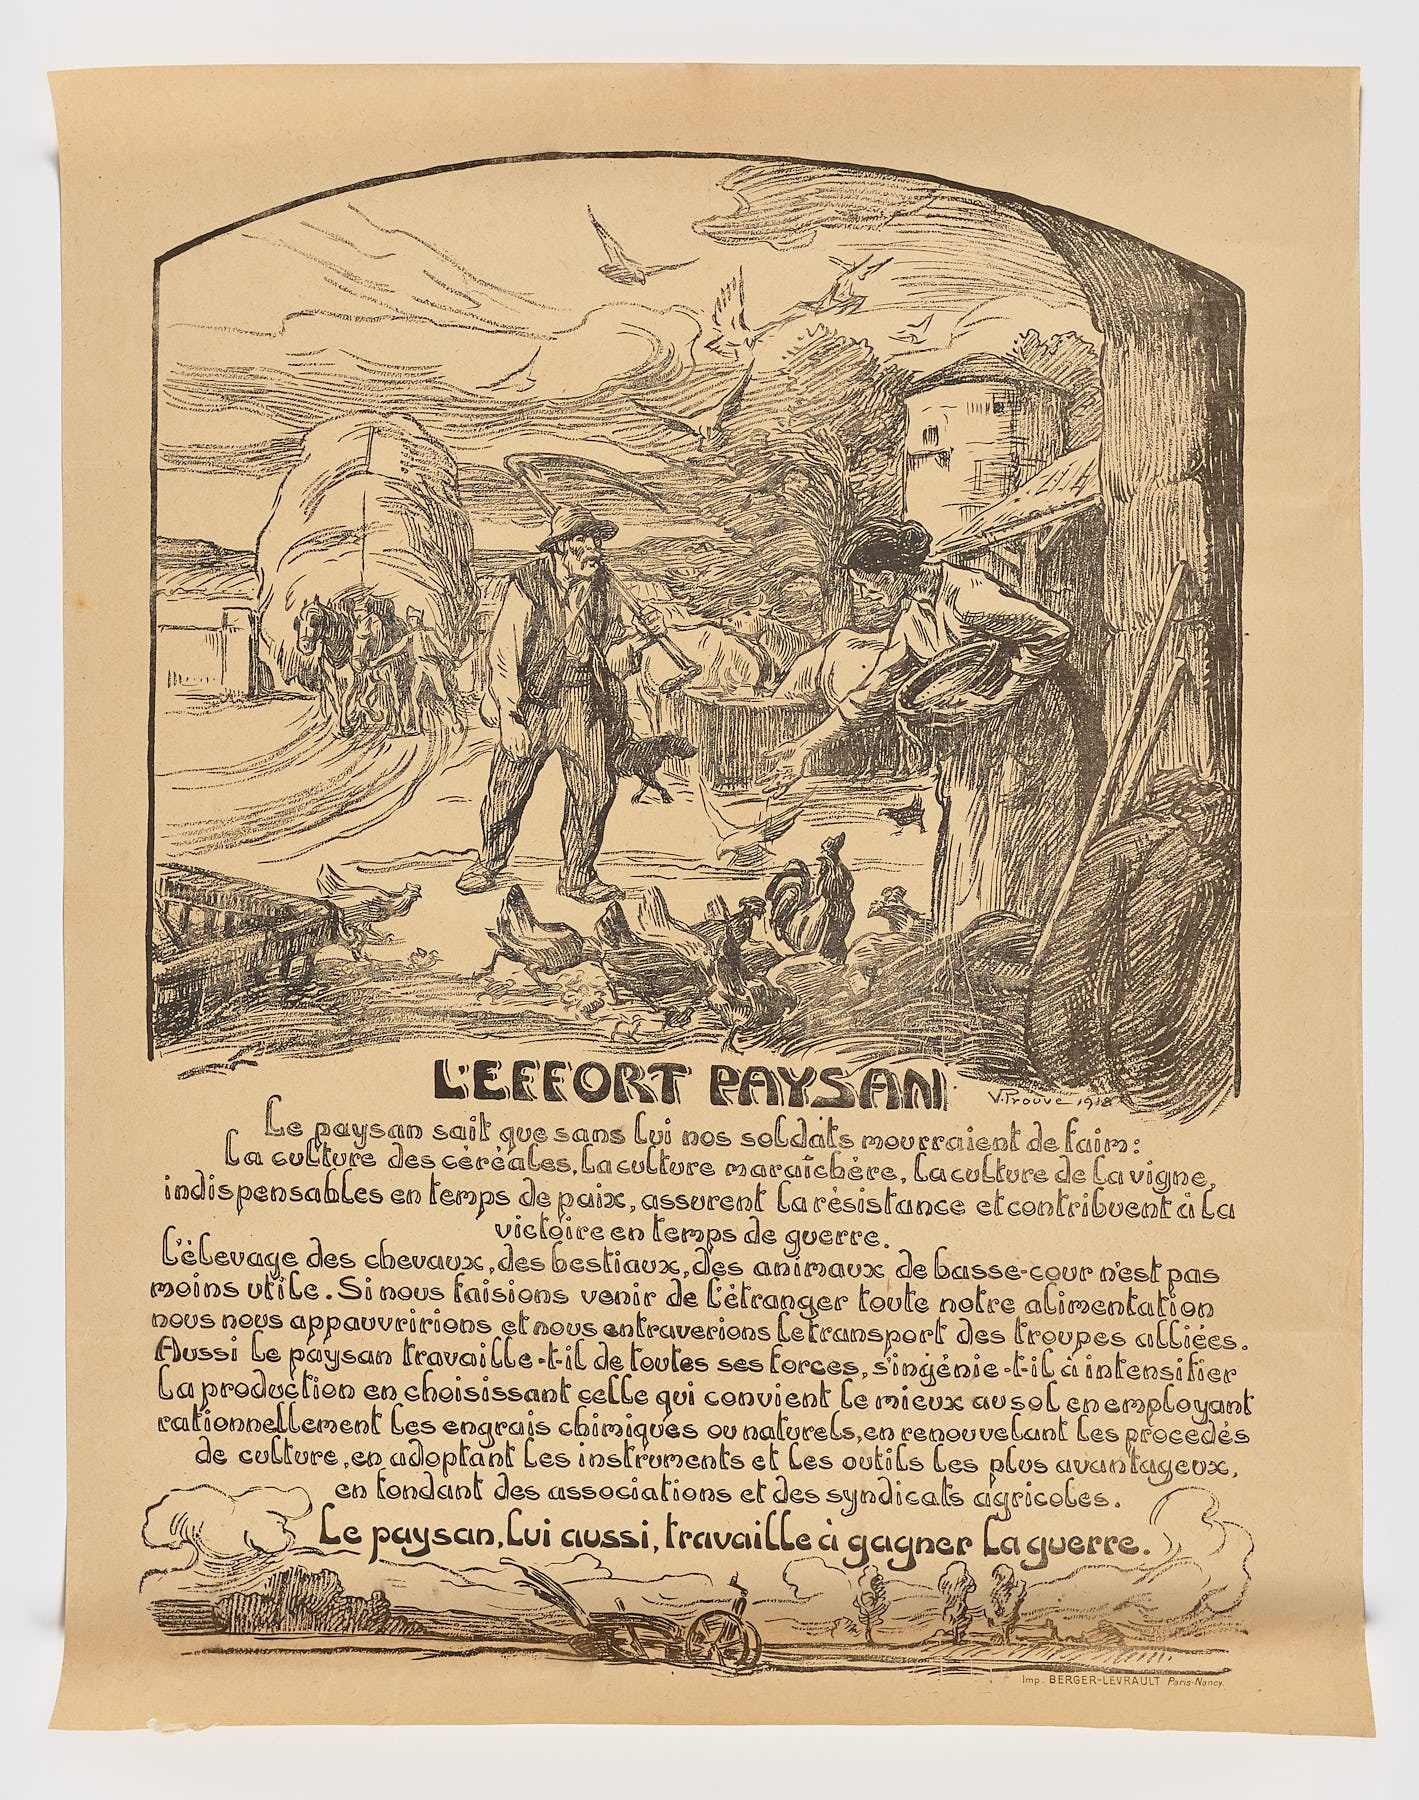 L'EFFORT PAYSAN
V. Prouvé 1918
Le paysan sait que sans lui nos soldats mourraient de faim:
La culture des céréales, la culture maraîchère, la culture de la vigne,
indispensables en temps de paix, assurent la résistance et contribuent à la
victoire en temps de guerre.
L'élevage des chevaux, des bestiaux, des animaux de basse-cour n'est pas
moins utile. Si nous faisions venir de l'étranger toute notre alimentation
nous nous appauvririons et nous entraverions le transport des troupes alliées.
Aussi le paysan travaille-t-il de toutes ses forces, s'ingénie-t-il à intensifier
la production en choisissant celle qui convient le mieux au sol en employant
rationnellement les engrais chimiques ou naturels, en renouvelant les procédés
de culture, en adoptant les instruments et les outils les plus avantageux,
en fondant des associations et des syndicats agricoles.
Le paysan, lui aussi, travaille à gagner la guerre.
Imp. BERGER-LEVRAULT Paris-Nancy.